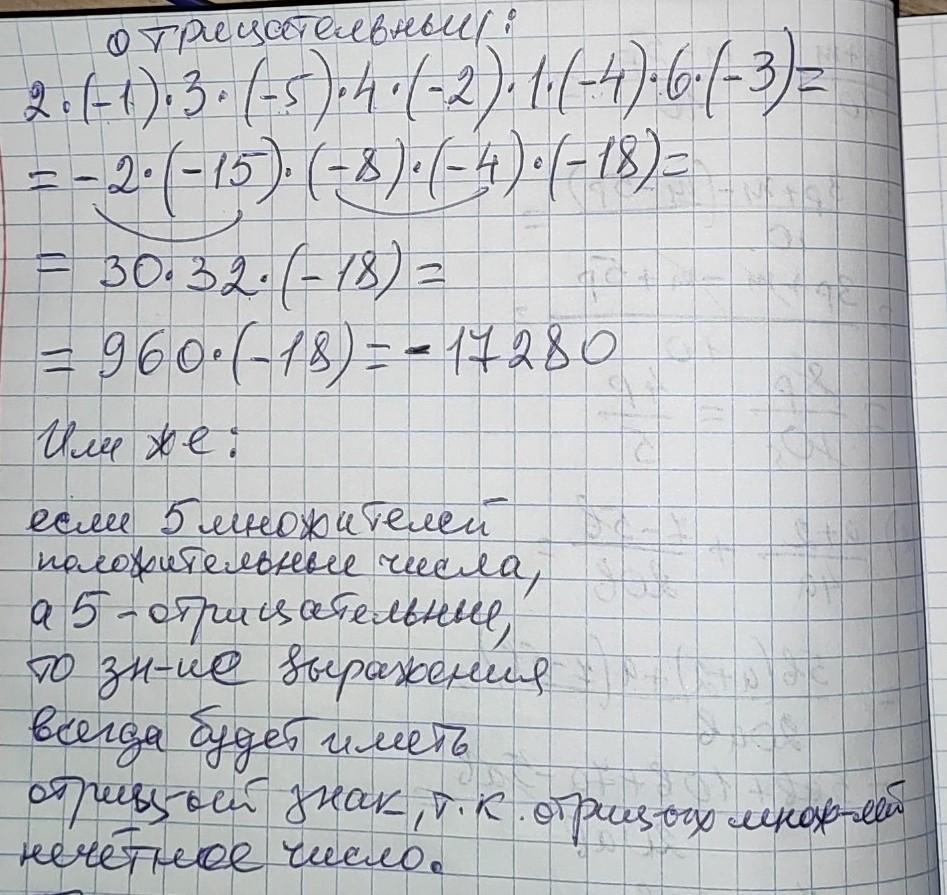 отрицательный:
2·(-1)·3·(-5)·4·(-2)·1·(-4)·6·(-3)=
=-2·(-15)·(-8)·(-4)·(-18)=
= 30·32·(-18)=
= 960·(-18)=-17280
Или же:
если 5 множителей
положительные числа,
а 5-отрицательные,
то зн-ие выражения
всегда будет иметь
отриц-ый знак, т.к. отриц-ых множ-лей
нечётное число.